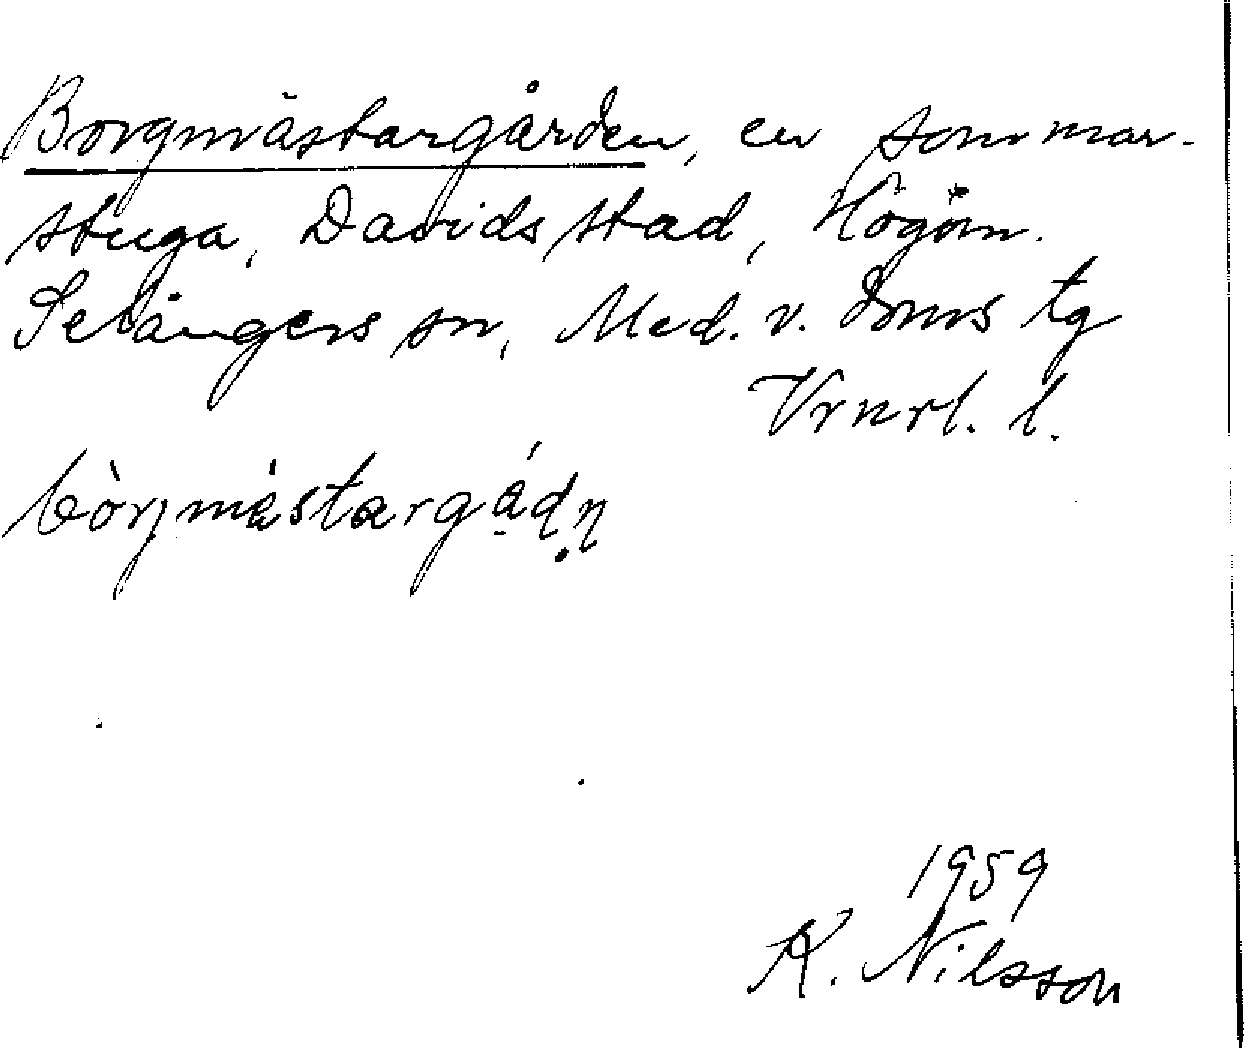 Borgmästargården, en sommar-
stuga, Davidsstad, Högom.
Selångers sn, Med. v. doms tg
Vrnrl. l.
bòrjmästargádn
1959
K. Nilsson